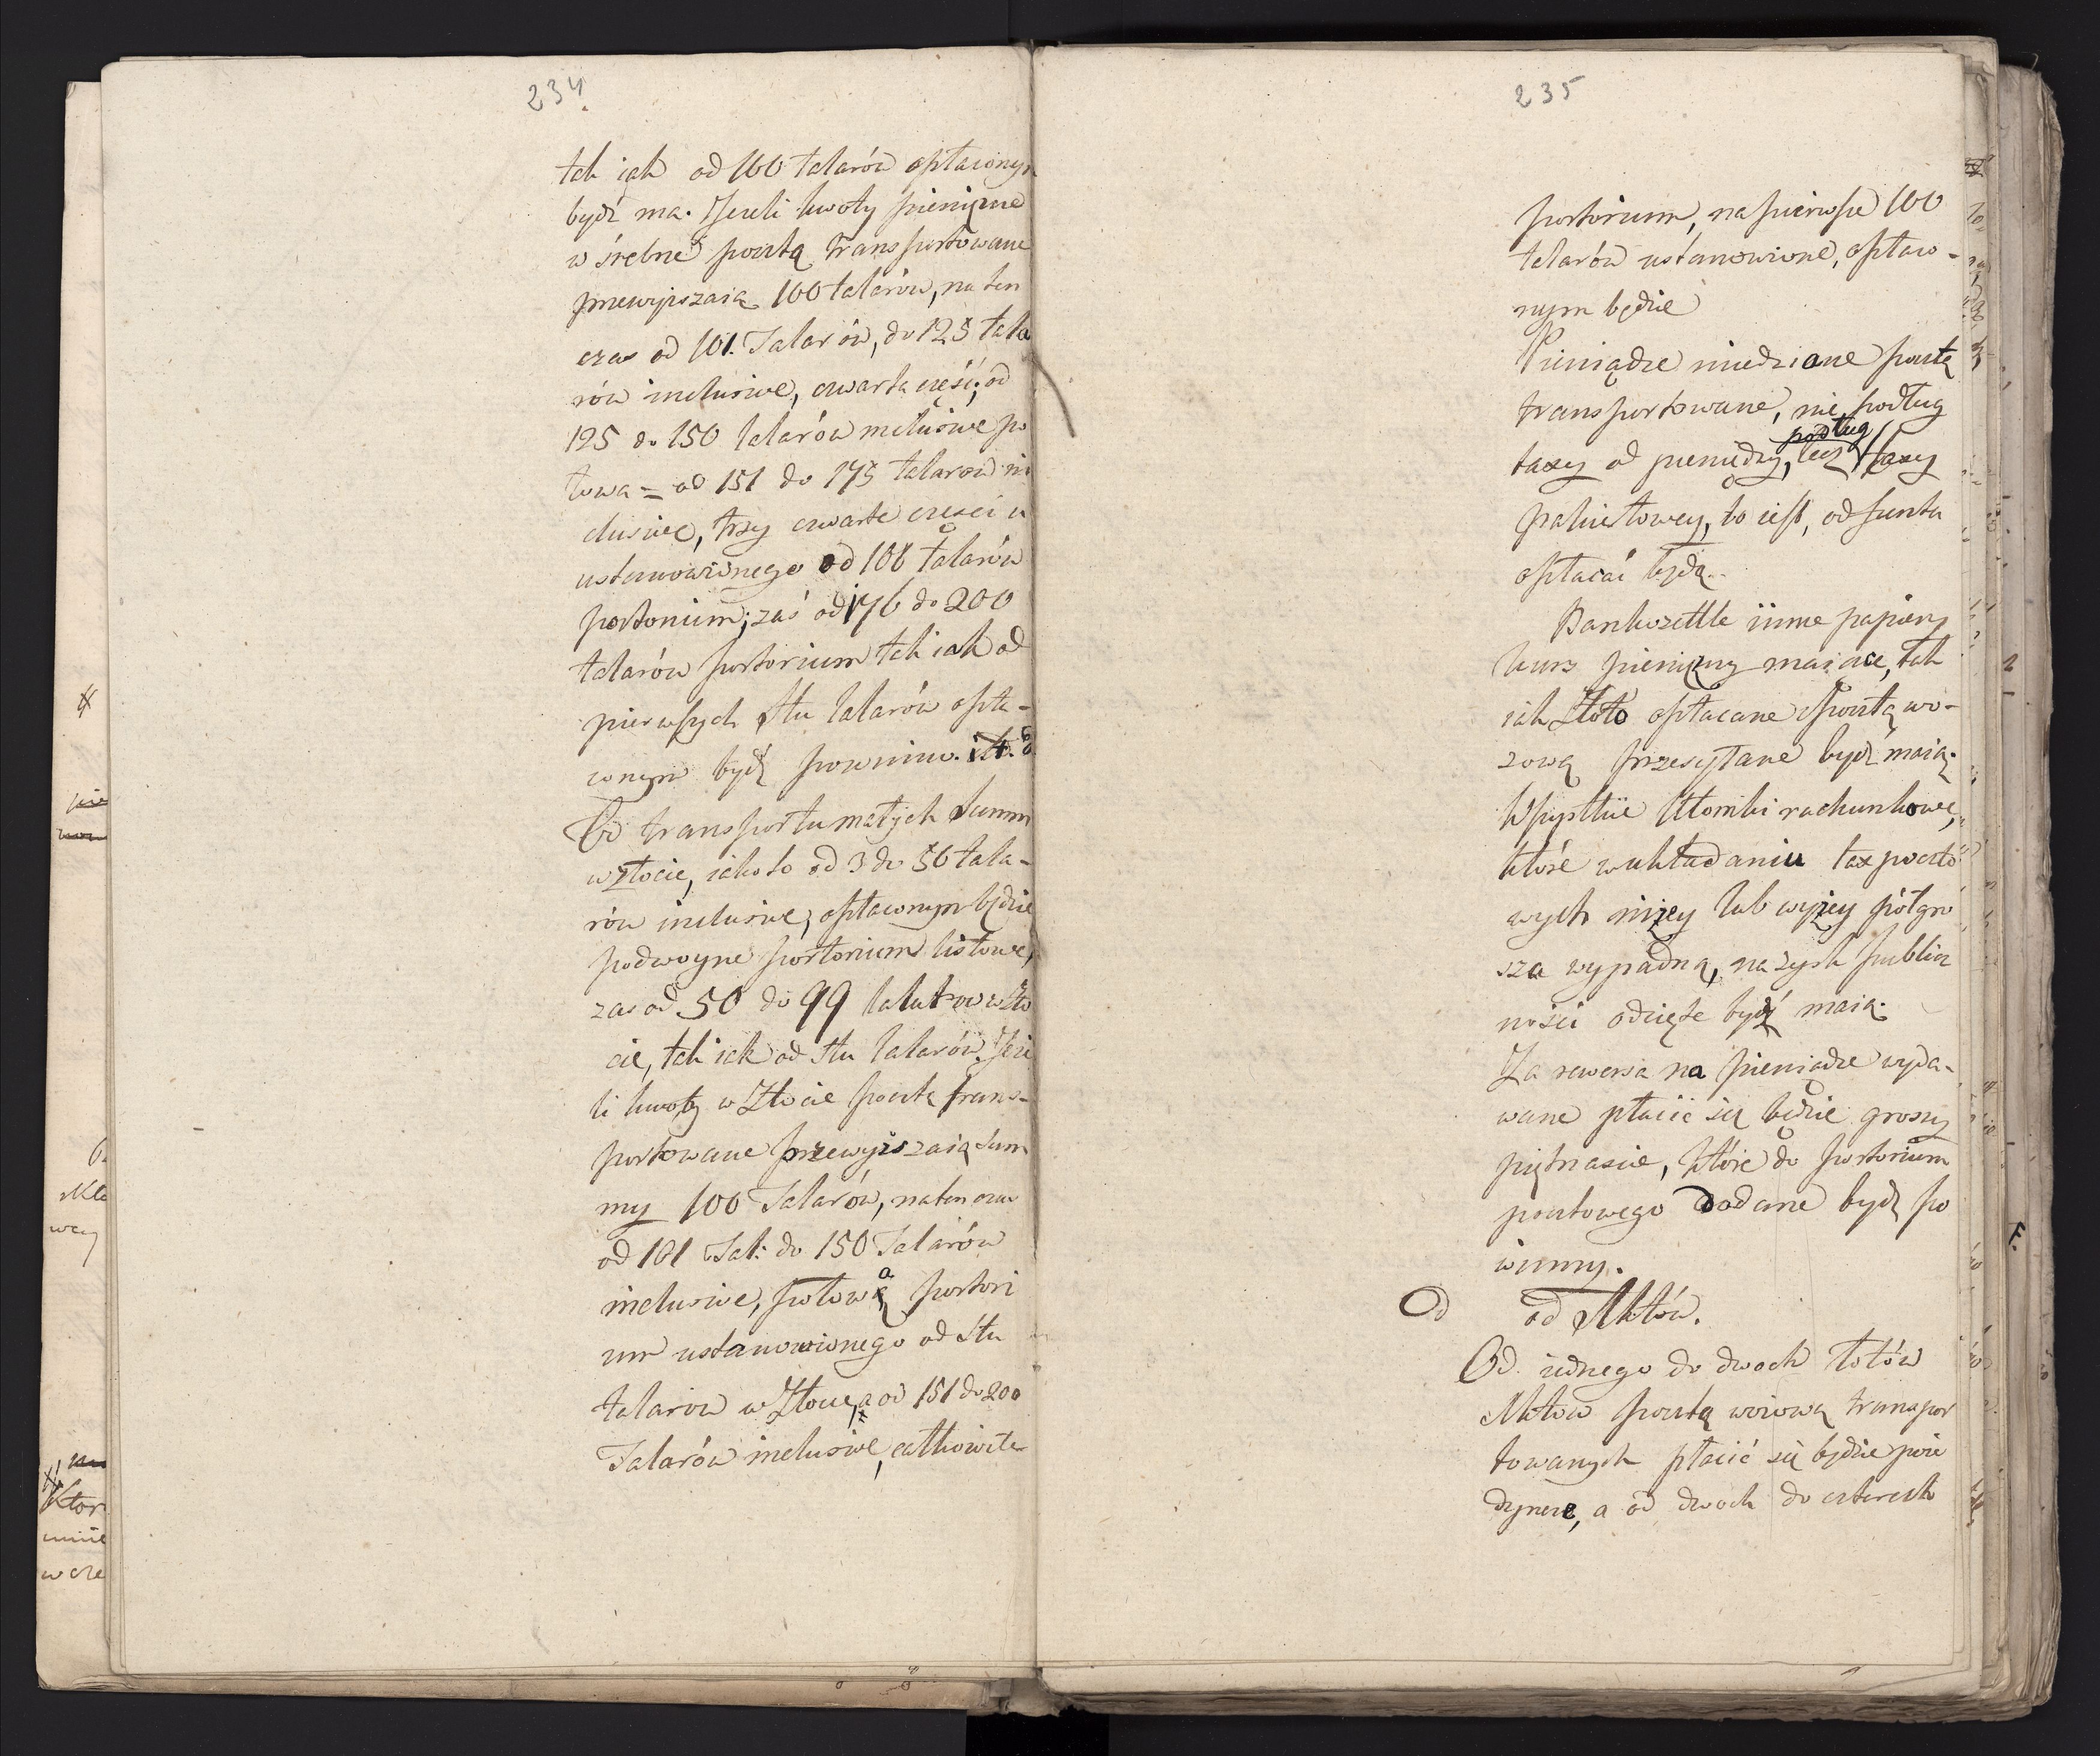 234
tak iak od 100 talarów opłaconym
bydź ma. Jeżeli kwoty pieniężne
w śrebrne pocztą transportowane
przewyższaią 100 talarów, na ten
czas od 101. Talarów, do 125 tala
rów inclusive, czwarta część; od
125 do 150 talarów inclusive po
łowa = od 151 do 175 talarów in
clusive, trzy czwarte części
ustanowionego od 100 talarów
portorium; zaś od 176 do 200
talarów portorium tak iak od
pierwszych stu talarów opła-
conym bydź powinno.
Od transportu małych Summ
w złocie, iako to od 3 do 50 tala-
rów inclusive, opłaconym będzie
podwoyne portorium listowe,
zaś od 50 do 99 talarów w Zło
cie, tak iak od stu talarów. Jeże
li kwoty w Złocie pocztą trans-
portowane przewyższaią Sum
my 100 Talarów, na ten czas
od 101 Tal: do 150 Talarów
inclusive, połowa portori
um ustanowionego od stu
talarów w Złocie, a od 151 do 200
Talarów inclusive, całkowite
235
portorium, na pierwsze 100
talarów ustanowione, opłaco-
nym będzie
Pieniądze miedziane pocztą
transportowane, nie podług
taxy od pieniędzy, lecz podług taxy
pakietowey, to iest, od funta
opłacać będą.
Bankozettle i inne papiery
kurs pieniężny maiące, tak
iak Złoto opłacane i pocztą wo-
zową przesyłane bydź maią.
Wszystkie Ułomki rachunkowe,
które w układaniu tax poczto
wych niżey lub wyżey półgro
sza wypadną, na zysk publicz
ności odcięte bydź maią.
Za rewersa na pieniądze wyda-
wane płacić się będzie groszy
piętnaście, które do portorium
pocztowego dodane bydź po
winny.
Od od Aktów.
Od iednego do dwoch łotów
Aktów pocztą wozową transpor
towanych płacić się będzie poie
dyncze, a od dwoch do czterech